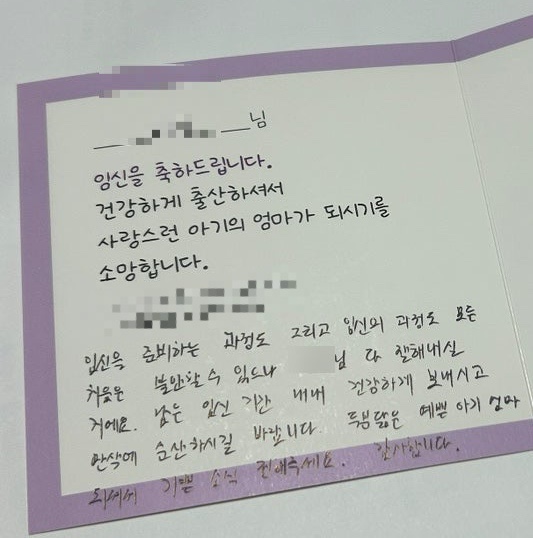 님
임신을 축하드립니다.
건강하게 출산하셔서
사랑스런 아기의 엄마가 되시기를
소망합니다.
임신을 준비하는 과정도 그리고 임신의 과정도 모든
처음은 불안할 수 있으나 님 다 잘해내실
거에요. 남은 임신 기간 내내 건강하게 보내시고
만삭에 순산하시길 바랍니다. 두분 닮은 예쁜 아기 엄마
되셔서 기쁜 소식 전해주세요. 감사합니다.